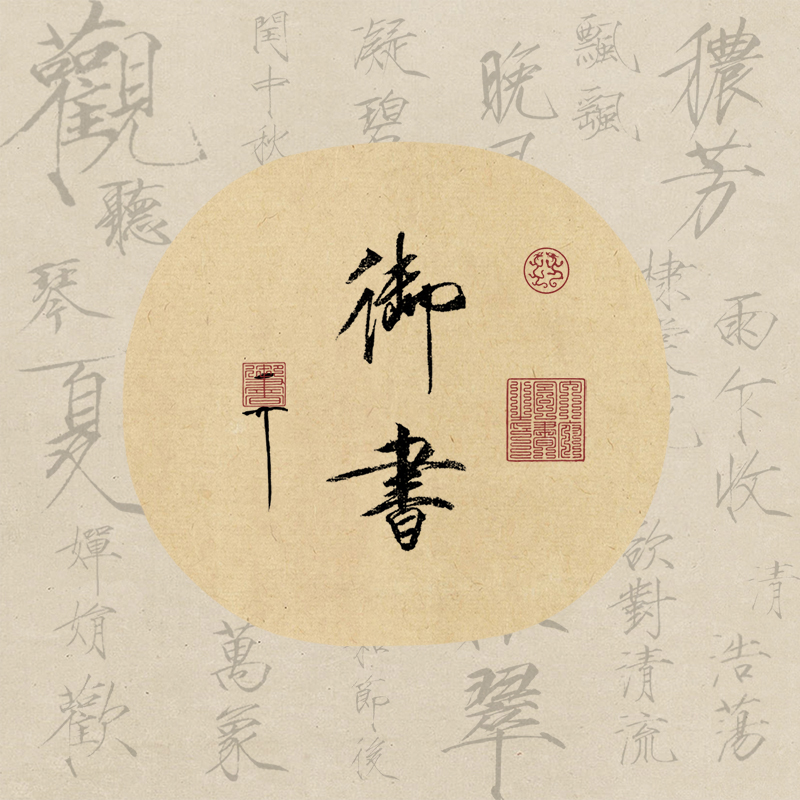 御書
穠芳
雨乍收
清
浩蕩
飄飄
欲對清流
晚
翠
凝碧
節後
閏中秋
萬象
觀
聽
琴
夏
嬋娟
歡